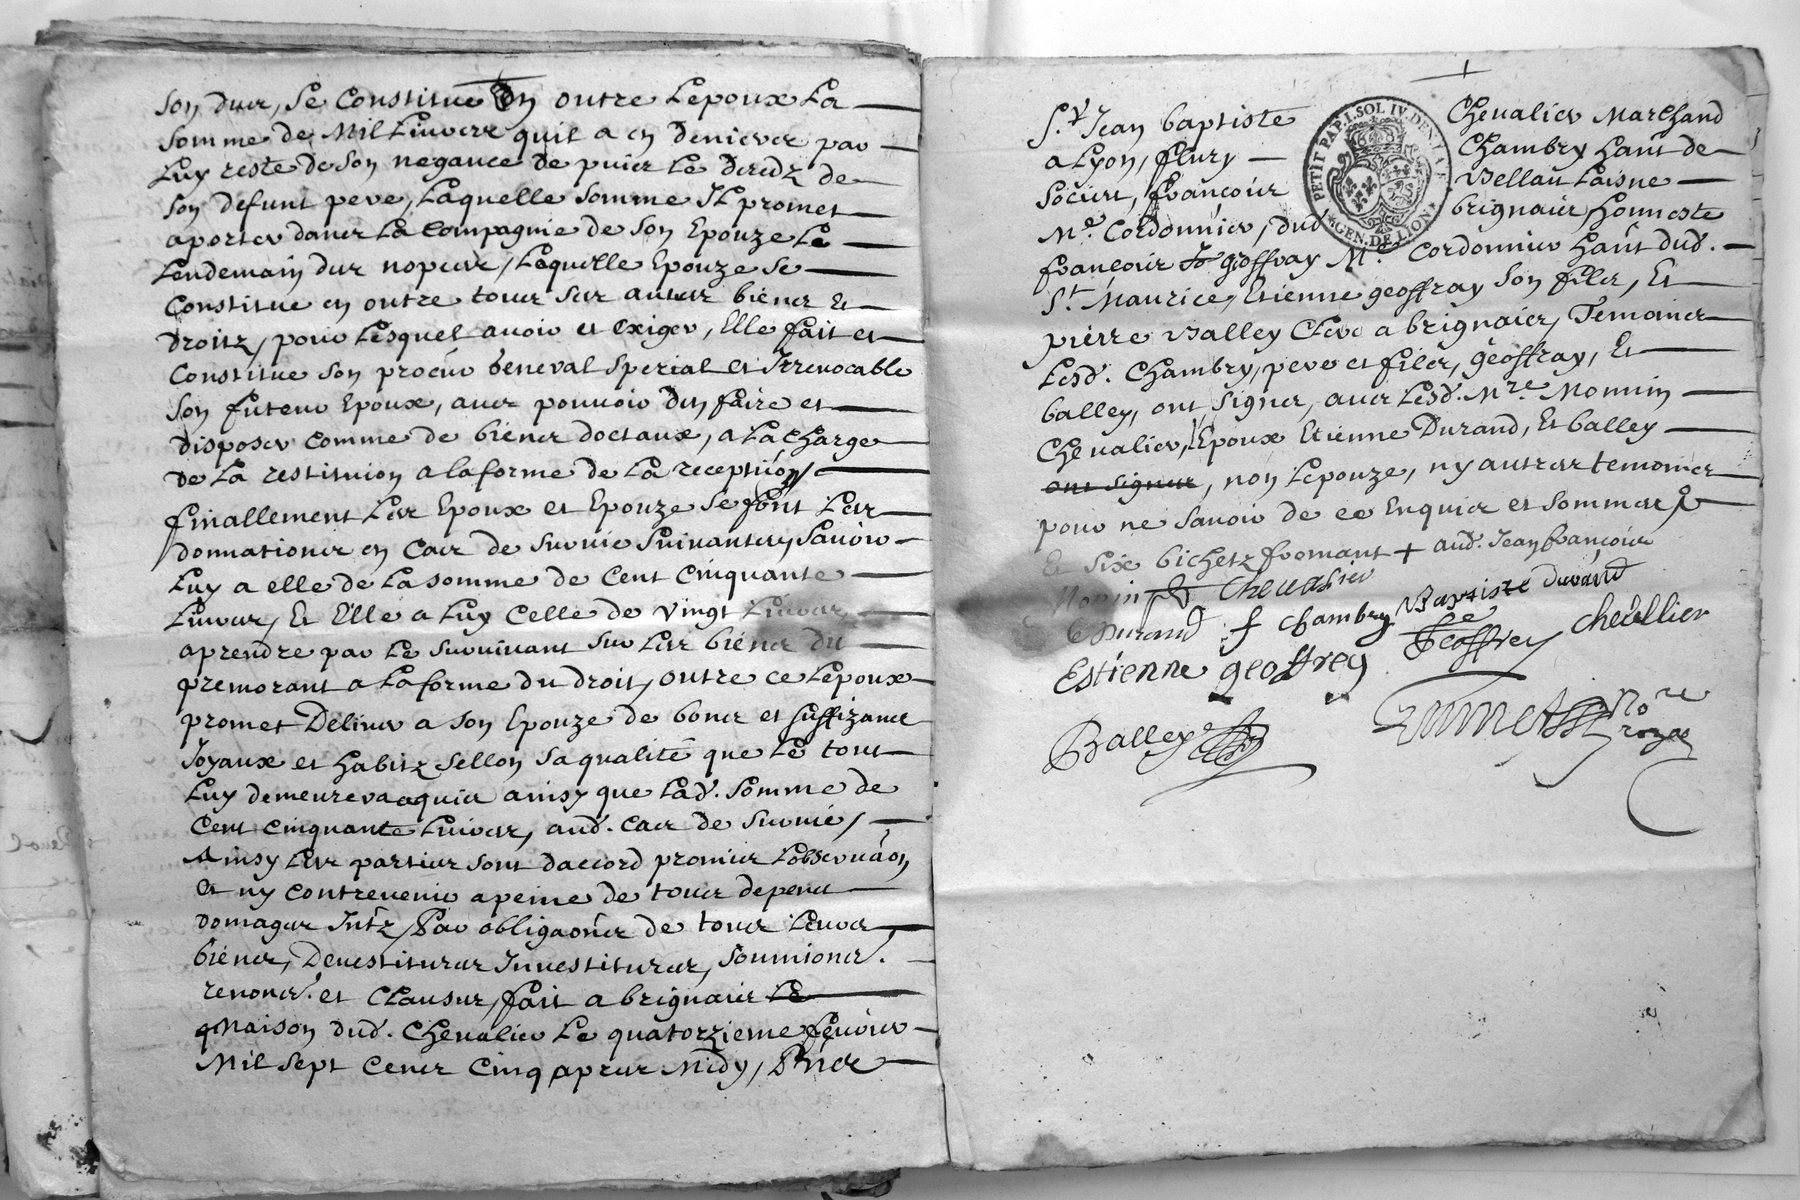 son duer, se Constitue En outre Lepoux La
somme de Mil Livres quil a en deniers par
Luy reste de son negance de puier Le decedz de
son defunt pere, Laquelle somme IL promet
aporter dans La Compagnie de son Epouze Le
Lendemain dus nopces, Laquelle Epouze se
Constitue en outre tous ses autres biens Et
droitz, pour Lesquel avoir et exiger, Elle fait et
Constitue son procûr general special et Irrevocable
son futeur Epoux, avec pouvoir den faire et
disposer comme de biens doctaux, a La charge
de La restituion a la forme de La reception,
finallement Les Epoux et Epouze se font Les
donnationes en Cas de survie suivantes, savoir
Luy a elle de La somme de Cent Cinquante
Livres, Et Elle a Luy Celle de vingt Livres,
aprendre par Le survivant sur Les biens du
premorant a La forme du droit, outre ce Lepoux
promet Delivrer a son Epouze de bons et suffizans
Joyaux et habitz sellon sa qualité que Le tout
Luy demeurera aquis ainsy que Lad. somme de
Cent Cinquante Livres, aud. Cas de survie,
Ainsy Les parties sont daccord promis Lobservaôn
et ny contrevenir a peine de tous depens
domages Intz, Par obligaônes de tous Leurs
biens, Devestitures Investitures, soumions.
renons. et clauses, fait a brignais Le
Maison dud. Chevalier Le quatorzieme fevrier
Mil sept Cens Cinq apres Midy, Pñs
Sr. Jean baptiste Chevalier Marchand
a Lyon, fleury Chambry habt. de
Socieu, françois Vellau Laisne
Me. Cordonnier, dud brignais, honneste
françois geoffray Me. Cordonnier habt. dud.
St. Maurice, Etienne geoffray son fils, Et
pierre Balley Clerc a brignais, Temoins
Lesd. Chambry, pere et fils, geoffray, Et
balley, ont signes, avec Lesd. Mre. Monnin
Chevalier, Epoux Etienne Durand, Et balley
ont signes, non Lepouze, ny autres temoins
pour ne savoir de ce Enquis et sommes
Et six bichetz fromant + aud. Jean françois
Monin Chevalier
e Durand f chambry Baptiste durand
Estienne geoffrey f geoffrey chevellier
Balley Nore